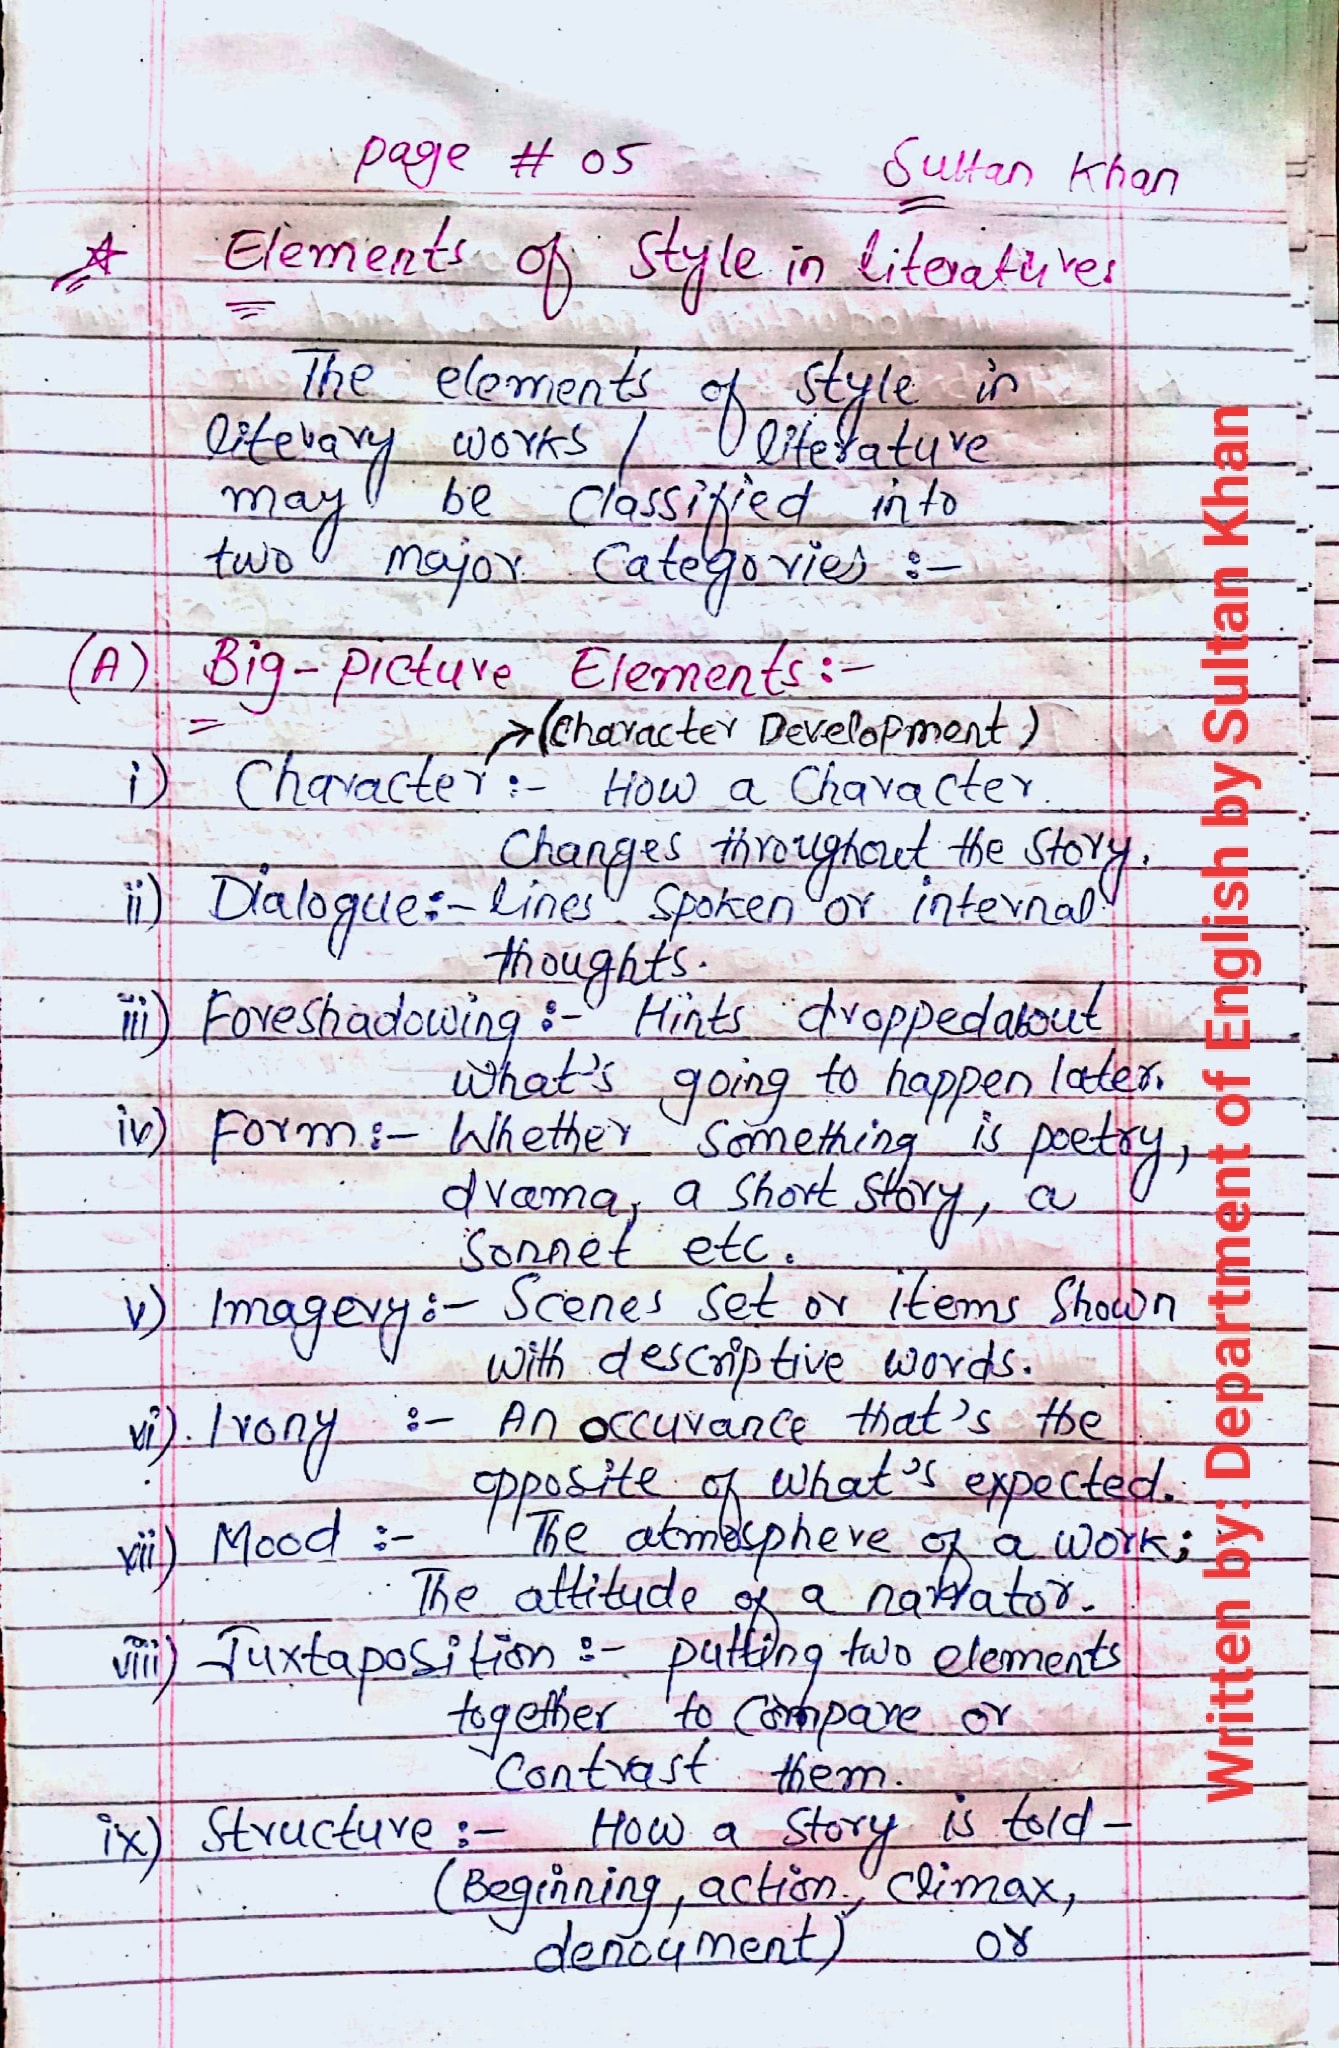 page # 05 Sultan Khan
Elements of Style in literatures
The elements of Style in
literary works / literature
may be Classified into
two major Categories :-
(A) Big-picture Elements:-
→(Character Development)
i) Character:- How a Character
Changes throughout the Story.
ii) Dialogue:- lines spoken or internal
thoughts.
iii) Foreshadowing:- Hints dropped about
what's going to happen later.
iv) Form:- Whether Something is poetry,
drama, a Short Story, a
Sonnet etc.
v) Imagery:- Scenes set or items Shown
with descriptive words.
vi). Irony :- An occurance that's the
opposite of what's expected.
vii) Mood :- The atmosphere of a work;
The attitude of a narrator.
viii) Juxtaposition :- putting two elements
together to Compare or
Contrast them.
ix) Structure :- How a Story is told -
(Beginning, action, Climax,
denoument) or
Written by: Department of English by Sultan Khan